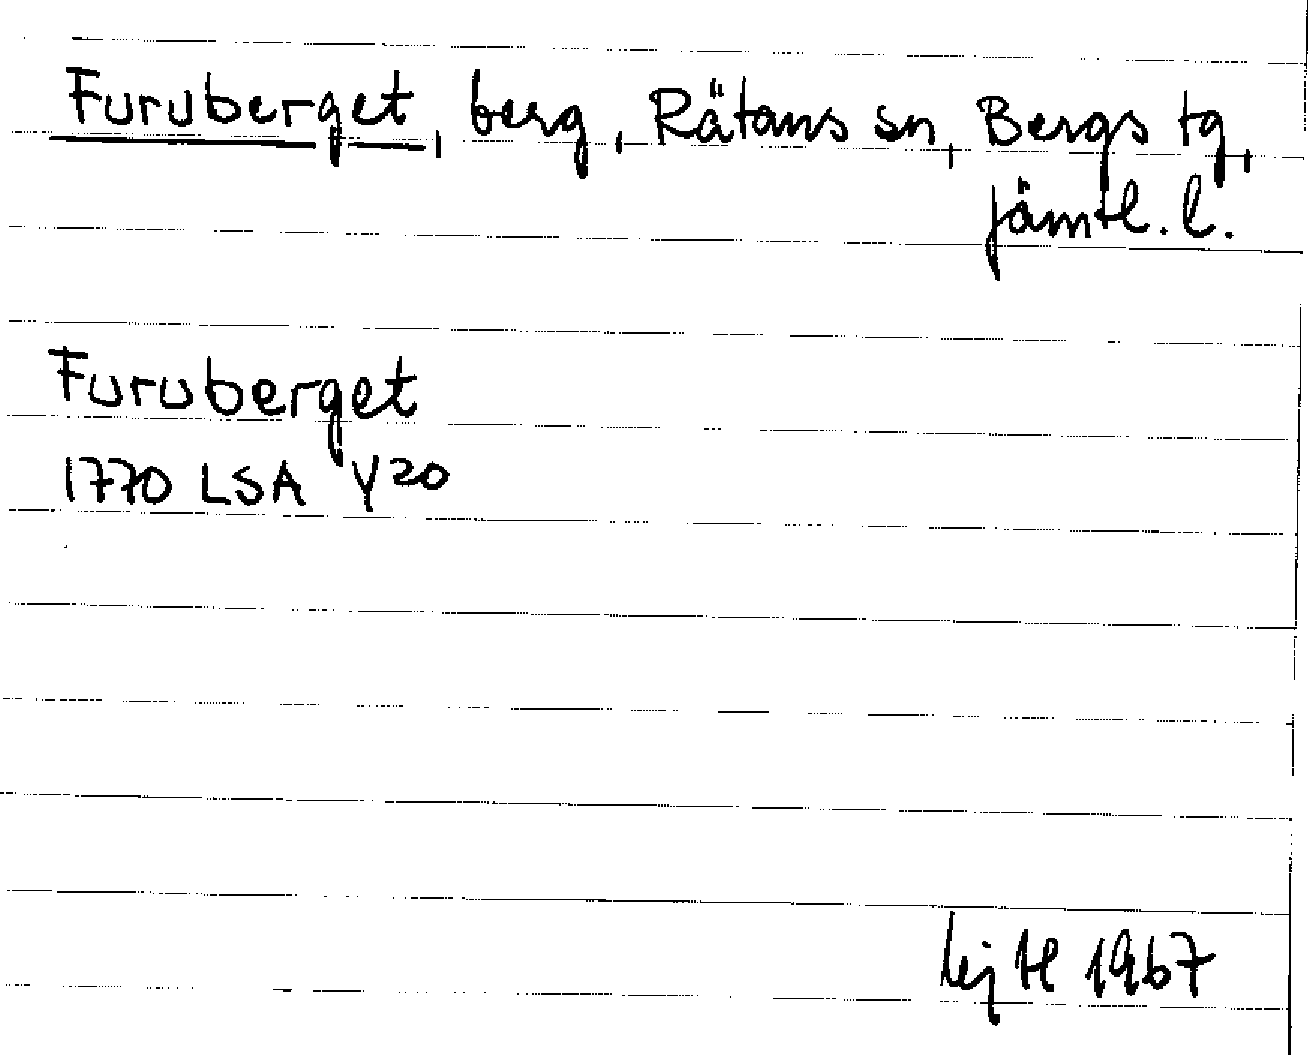 Furuberget, berg, Rätans sn, Bergs tg,
Jämtl. l.
Furuberget
1770 LSA Y20
1967